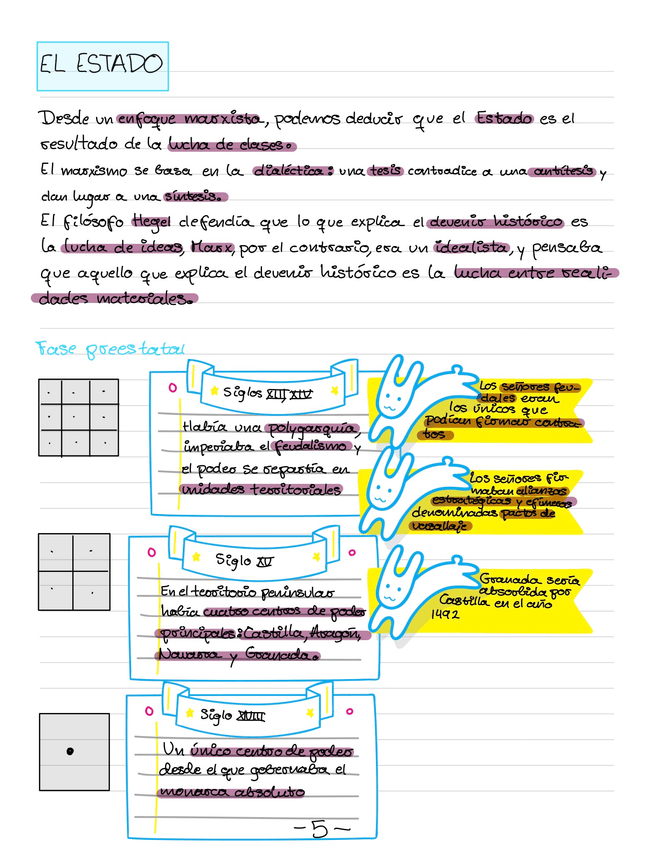 EL ESTADO
Desde un enfoque marxista, podemos deducir que el Estado es el
resultado de la lucha de clases.
El marxismo se basa en la dialéctica: una tesis contradice a una antítesis y
dan lugar a una síntesis.
El filósofo Hegel defendía que lo que explica el devenir histórico es
la lucha de ideas, Marx, por el contrario, era un idealista, y pensaba
que aquello que explica el devenir histórico es la lucha entre reali-
dades materiales.
Fase preestatal
Siglos XIII, XIV
Había una polygarquía,
imperiaba el feudalismo y
el poder se repartía en
unidades territoriales
los señores feu-
dales eran
los únicos que
podían firmar contra-
tos
Los señores fir-
maban alianzas
estratégicas y efímeras
denominadas pactos de
vasallaje
Siglo XV
En el territorio peninsular
había cuatro centros de poder
principales: Castilla, Aragón,
Navarra y Granada.
Granada sería
absorbida por
Castilla en el año
1492
Siglo XVIII
Un único centro de poder
desde el que gobernaba el
monarca absoluto
-5-